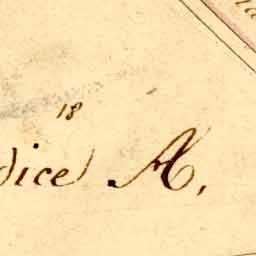 18
dice A,